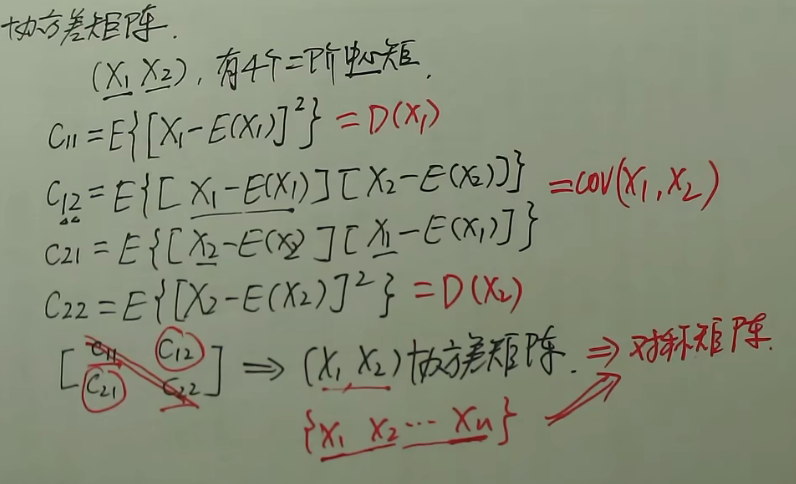 协方差矩阵.
(X₁ X₂), 有4个二阶中心矩.
C₁₁ = E{[X₁-E(X₁)]²} = D(X₁)
C₁₂ = E{[X₁-E(X₁)][X₂-E(X₂)]} = COV(X₁,X₂)
C₂₁ = E{[X₂-E(X₂][X₁-E(X₁)]}
C₂₂ = E{[X₂-E(X₂)]²} = D(X₂)
[C₁₁ C₁₂
C₂₁ C₂₂] ⇒ (X₁,X₂)协方差矩阵. ⇒ 对称矩阵.
{X₁ X₂ ⋯ Xn}